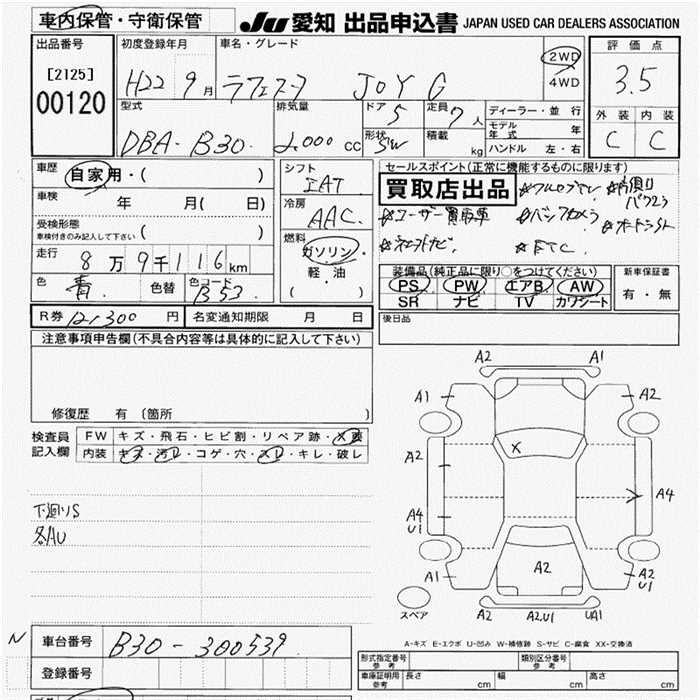 車内保管・守衛保管
JU 愛知 出品申込書 JAPAN USED CAR DEALERS ASSOCIATION
出品番号
[2125]
00120
初度登録年月
H22 9月
車名・グレード
ラフェスタ JOY G
2WD
4WD
評価点
3.5
外装 内装
C C
型式
DBA-B30
排気量
2,000 cc
ドア 5
形状 SW
定員 7人
積載 kg
ディーラー・並行
モデル年式 年
ハンドル 左・右
車歴 自家用・( )
車検 年 月( 日)
受検形態
車検付きのみ記入して下さい ( )
走行 8万9千116km
色 青 色替 色コード B53
シフト
IAT
冷房
AAC
燃料
ガソリン
軽・油
( )
セールスポイント(正常に機能するものに限ります)
買取店出品
☆フルセグTV
☆ユーザー買取車 ☆バックカメラ ☆オートスライド
☆ETC
装備品(純正品に限り○をつけてください)
PS PW エアB AW
SR ナビ TV カワシート
新車保証書
有・無
後日品
R券 12,300円 名変通知期限 月 日
注意事項申告欄(不具合内容等は具体的に記入して下さい)
修復歴 有 〔箇所 〕
検査員記入欄
FW キズ・飛石・ヒビ割・リペア跡・X要
内装 キズ・汚レ・コゲ・穴・スレ・キレ・破レ
下廻りS
各AU
A2 A1
A1 A2
X
A2
A4
A4
U1
A1 A2 A2
U1
スペア
A2 A2,U1 UA1
A-キズ E-エクボ U-凹み W-補修跡 S-サビ C-腐食 XX-交換済
N 車台番号 B30-300539
登録番号
形式指定番号 参考
類別区分番号 参考
車庫証明用 参考 長さ cm 幅 cm 高さ cm